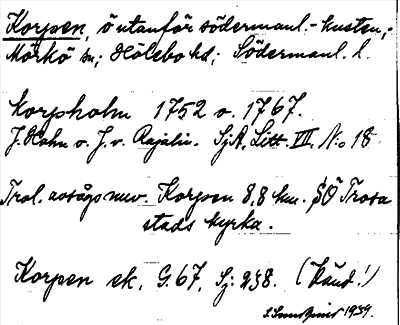 Korpen, ö utanför södermanl.-kusten,-
Mörkö sn; Hölebo hd; Södermanl. l.
Korpholm 1752 o. 1767.
J. Hahn o. J. v. Rajalin. SjA, Litt. VII. N:o 18.
Trol. avsågs nuv. Korpen 8,8 km. SÖ Trosa
stads kyrka.
Korpen ek. G. 67, Sj: 238. (känd!)
1939.